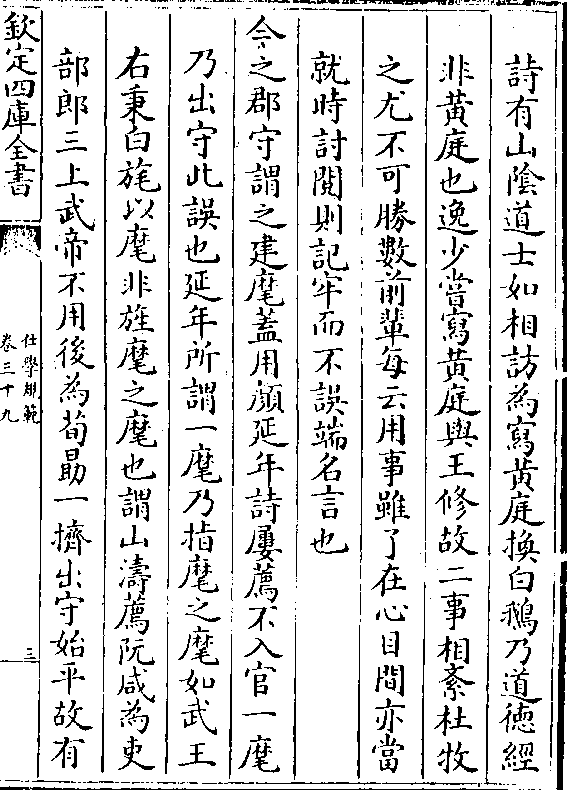 詩有山陰道士如相訪為寫黃庭換白鵝乃道德經
非黃庭也逸少嘗寫黃庭與王修故二事相紊杜牧
之尤不可勝數前輩每云用事雖了在心目間亦當
就時討閱則記牢而不誤端名言也
今之郡守謂之建麾蓋用顔延年詩屢薦不入官一麾
乃出守此誤也延年所謂一麾乃指麾之麾如武王
右秉白旄以麾非旌麾之麾也謂山濤薦阮咸為吏
部郎三上武帝不用後為荀勗一擠出守始平故有
欽定四庫全書
仕學規範
卷三十九
三